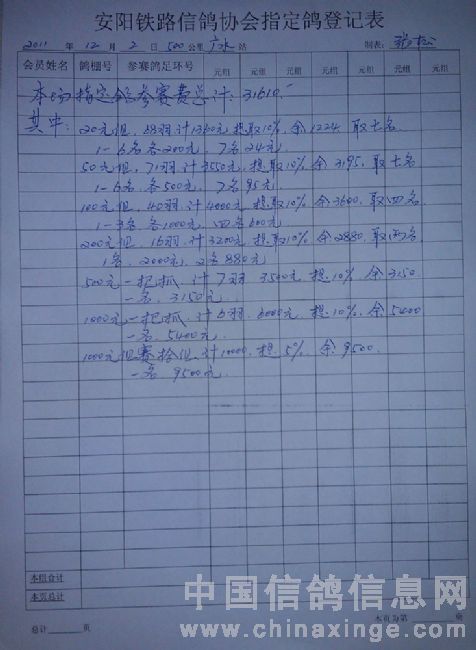 安阳铁路信鸽协会指定鸽登记表
2011 年 12 月 2 日 500 公里 广水 站 制表: 张松
会员姓名 鸽棚号 参赛鸽足环号 元组 元组 元组 元组 元组 元组
本场指定鸽参赛费总计: 31610.-
其中: 20元组, 68羽计1360元提取10%, 余1224 取七名
1-6名各200元, 7名24元
50元组, 71羽计3550元, 提取10% 余3195, 取七名
1-6名, 各500元, 7名95元
100元组, 40羽计4000元提取10% 余3600, 取四名
1-3名各1000元, 四名600元
200元组, 16羽计3200元提取10% 余2880, 取两名
1名, 2000元, 2名880元
500元一把抓, 计7羽 3500元 提10% 余3150
一名, 3150元
1000元一把抓, 计6羽, 6000元, 提10%, 余5400
一名, 5400元
1000元组赛拾组, 计10000, 提5%, 余9500
一名 9500元
本组合计
本页总计
总计 页 本页为第 页
中国信鸽信息网
www.chinaxinge.com